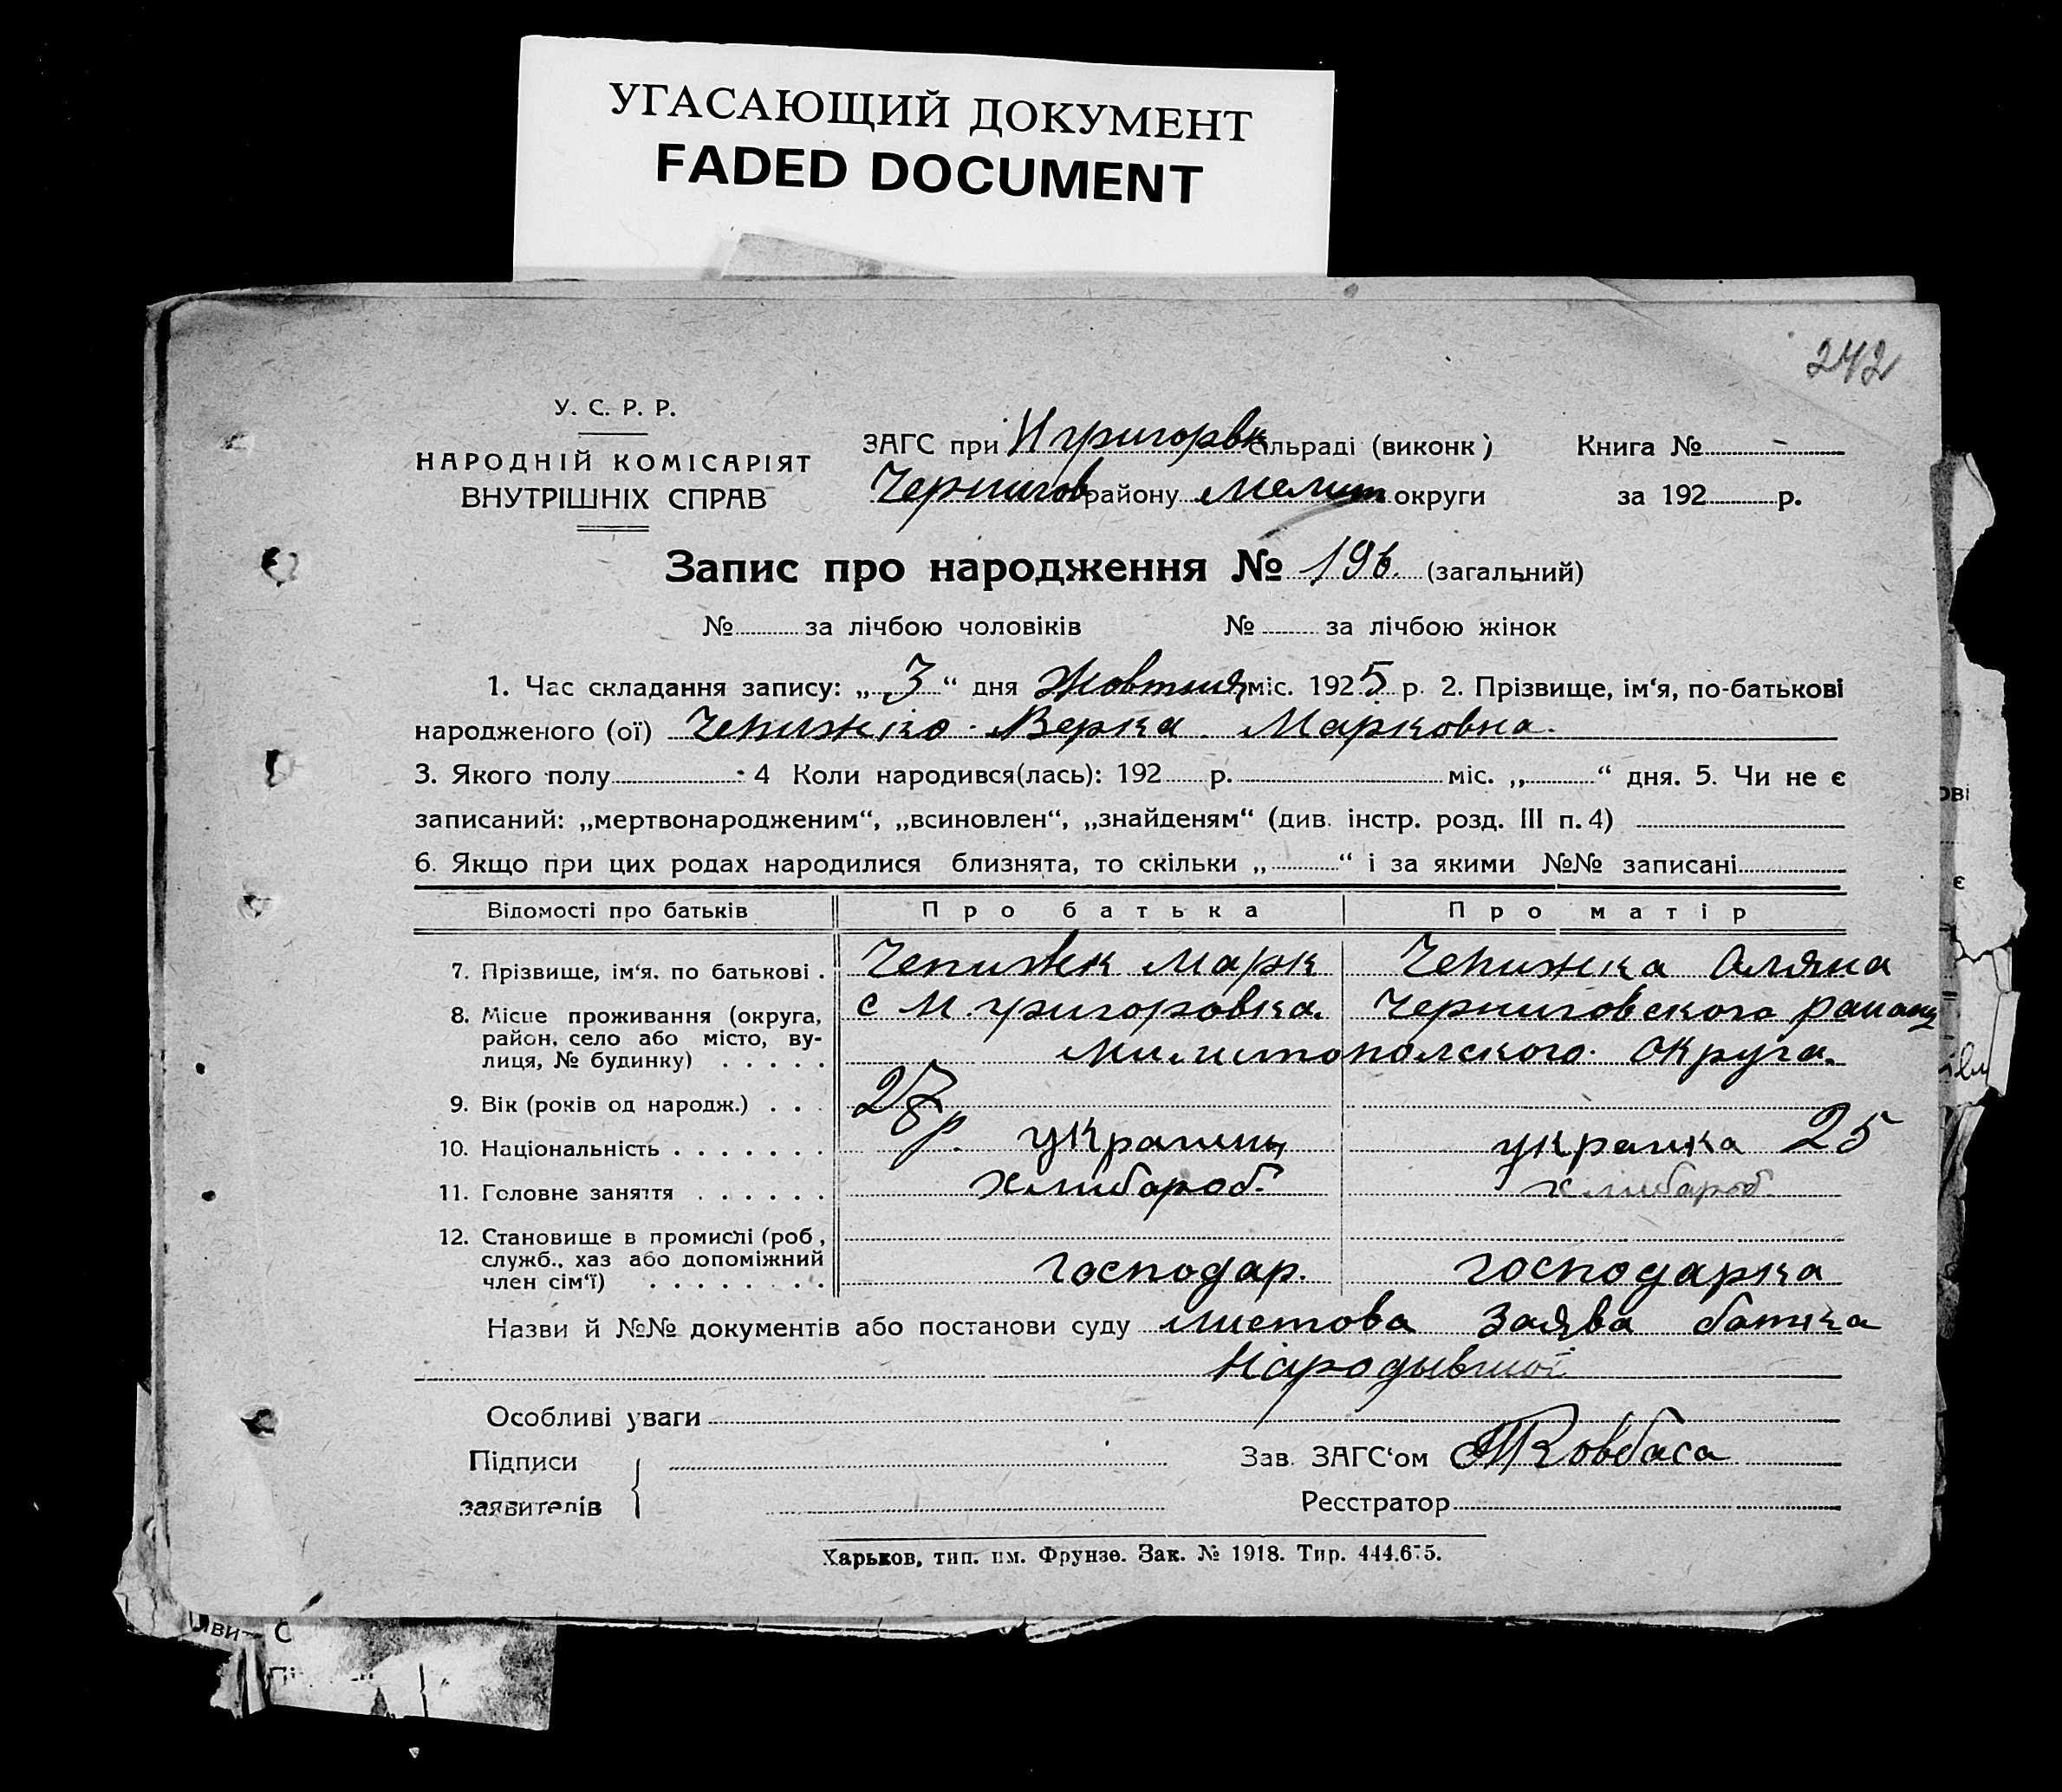 УГАСАЮЩИЙ ДОКУМЕНТ
FADED DOCUMENT
242
У. С. Р. Р.
НАРОДНІЙ КОМІСАРІЯТ
ВНУТРІШНІХ СПРАВ
ЗАГС при Н григорвк сільраді (виконк)
Книга № -
Чернигов району Мелит округи
за 192 р.
Запис про народження № 196. (загальний)
№ за лічбою чоловіків № за лічбою жінок
1. Час складання запису: „ 3 “ дня Жовтня міс. 1925 р. 2. Прізвище, ім‘я, по-батькові
народженого (ої) Чепижко Верка Марковна.
3. Якого полу 4 Коли народився(лась): 192 р. міс. „ “ дня. 5. Чи не є
записаний: „мертвонародженим“, „всиновлен“, „знайденям“ (див. інстр. розд. III п. 4)
6. Якщо при цих родах народилися близнята, то скільки „ “ і за якими №№ записані
Відомості про батьків Про батька Про матір
7. Прізвище, ім‘я. по батькові . Чепижк Марк Чепижка Оляна
8. Місце проживання (округа, район, село або місто, ву-
лиця, № будинку) . . . . .
с М. григоровка. Черниговского района
Милитополского округа.
9. Вік (років од народж.) . . . 27 р. 25
10. Національність . . . . . . . украинц украинка
11. Головне заняття . . . . . . хлибароб. хлибароб.
12. Становище в промислі (роб,
служб., хаз або допоміжний
член сім‘ї) . . . . . . . . господар. господарка
Назви й №№ документів або постанови суду листова заява батька
Народывшої
Особливі уваги
Підписи
заявителів
Зав. ЗАГС‘ом Ковбаса
Реєстратор
Харьков, тип. им. Фрунзе. Зак. № 1918. Тир. 444.675.